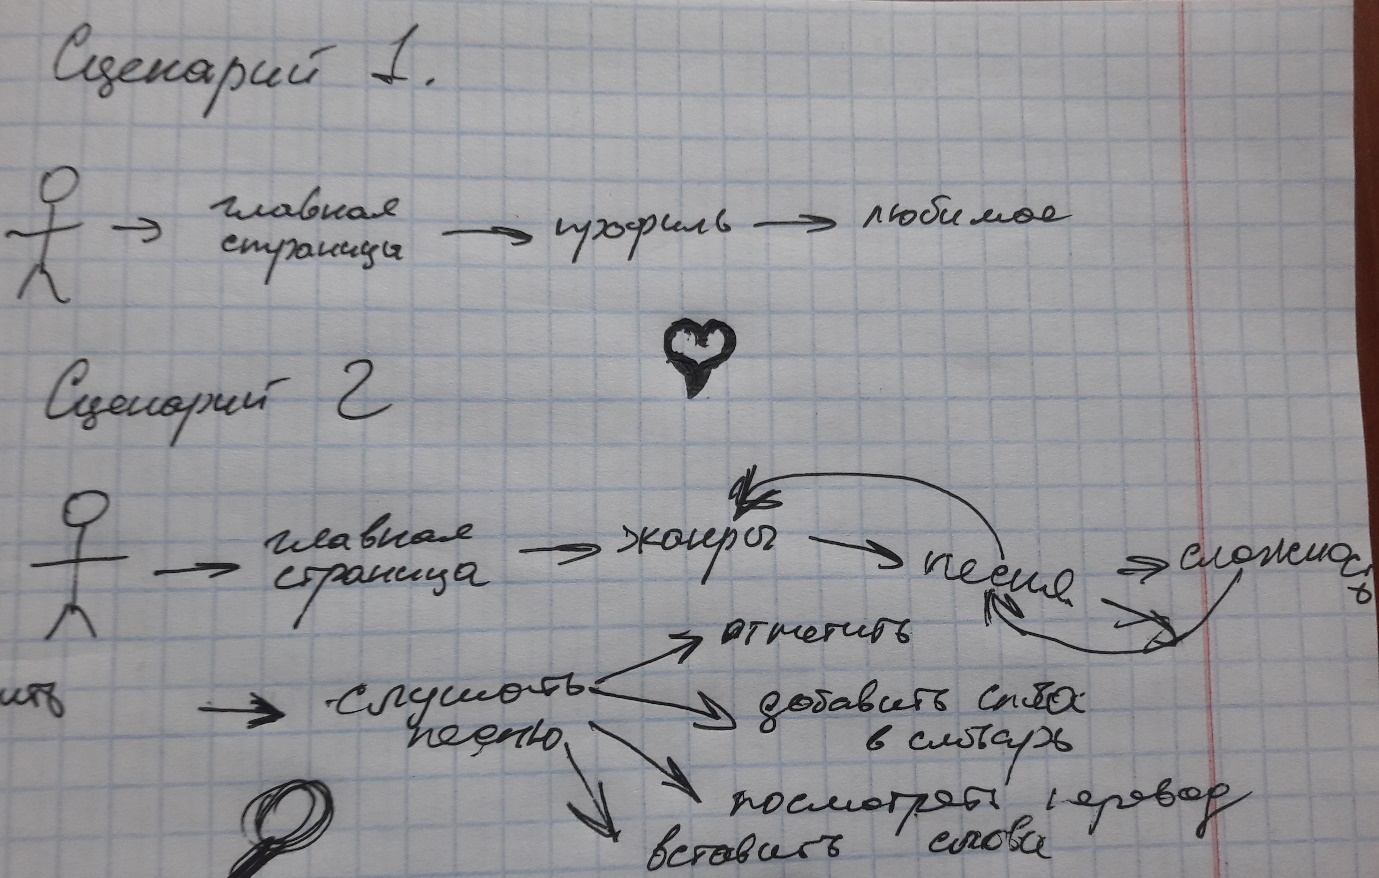 Сценарий 1.
главная
страницы
профиль
любимое
Сценарий 2
главная
страница
жанры
песня
сложность
ить
слушать
песню
отметить
добавить слова
в словарь
посмотреть перевод
вставить слова